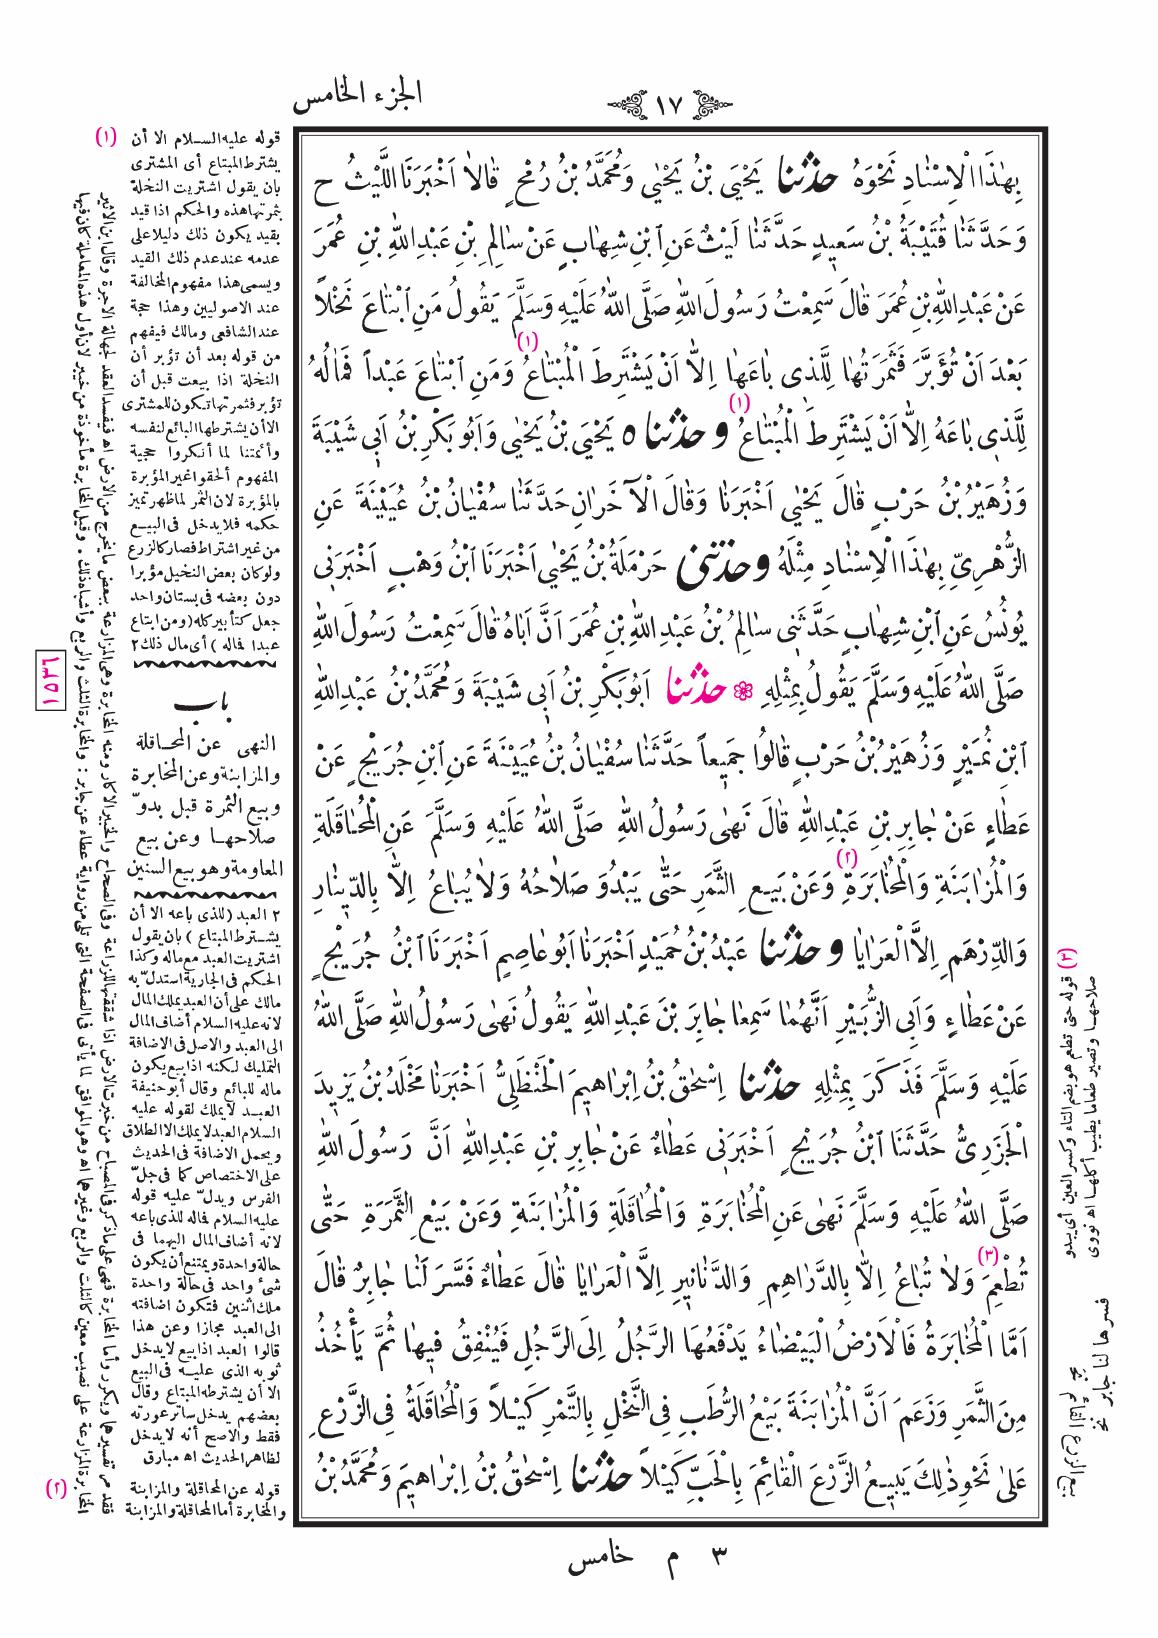 ١٧
الجزء الخامس
بِهٰذَا الْاِسْنَادِ نَحْوَهُ حدثنا يَحْيَى بْنُ يَحْيٰى وَمُحَمَّدُ بْنُ رُمْحٍ قَالاَ اَخْبَرَنَا اللَّيْثُ ح
وَحَدَّثَنَا قُتَيْبَةُ بْنُ سَعِيدٍ حَدَّثَنَا لَيْثٌ عَنِ ابْنِ شِهَابٍ عَنْ سَالِمِ بْنِ عَبْدِ اللهِ بْنِ عُمَرَ
عَنْ عَبْدِ اللهِ بْنِ عُمَرَ قَالَ سَمِعْتُ رَسُولَ اللهِ صَلَّى اللهُ عَلَيْهِ وَسَلَّمَ يَقُولُ مَنِ ابْتَاعَ نَخْلاً
بَعْدَ اَنْ تُؤَبَّرَ فَثَمَرَتُهَا لِلَّذِى بَاعَهَا اِلاَّ اَنْ يَشْتَرِطَ الْمُبْتَاعُ (١) وَمَنِ ابْتَاعَ عَبْداً فَمَالُهُ
لِلَّذِى بَاعَهُ اِلاَّ اَنْ يَشْتَرِطَ الْمُبْتَاعُ (١) و حدثنا ٥ يَحْيَى بْنُ يَحْيٰى وَاَبُو بَكْرِ بْنُ اَبِى شَيْبَةَ
وَزُهَيْرُ بْنُ حَرْبٍ قَالَ يَحْيٰى اَخْبَرَنَا وَقَالَ الْآخَرَانِ حَدَّثَنَا سُفْيَانُ بْنُ عُيَيْنَةَ عَنِ
الزُّهْرِىِّ بِهٰذَا الْاِسْنَادِ مِثْلَهُ و حدثنى حَرْمَلَةُ بْنُ يَحْيٰى اَخْبَرَنَا ابْنُ وَهْبٍ اَخْبَرَنِى
يُونُسُ عَنِ ابْنِ شِهَابٍ حَدَّثَنِى سَالِمُ بْنُ عَبْدِ اللهِ بْنِ عُمَرَ اَنَّ اَبَاهُ قَالَ سَمِعْتُ رَسُولَ اللهِ
صَلَّى اللهُ عَلَيْهِ وَسَلَّمَ يَقُولُ بِمِثْلِهِ حدثنا اَبُو بَكْرِ بْنُ اَبِى شَيْبَةَ وَمُحَمَّدُ بْنُ عَبْدِ اللهِ
ابْنِ نُمَيْرٍ وَزُهَيْرُ بْنُ حَرْبٍ قَالُوا جَمِيعاً حَدَّثَنَا سُفْيَانُ بْنُ عُيَيْنَةَ عَنِ ابْنِ جُرَيْجٍ عَنْ
عَطَاءٍ عَنْ جَابِرِ بْنِ عَبْدِ اللهِ قَالَ نَهٰى رَسُولُ اللهِ صَلَّى اللهُ عَلَيْهِ وَسَلَّمَ عَنِ الْمُحَاقَلَةِ
وَالْمُزَابَنَةِ وَالْمُخَابَرَةِ (٢) وَعَنْ بَيْعِ الثَّمَرِ حَتّٰى يَبْدُوَ صَلاَحُهُ وَلاَ يُبَاعُ اِلاَّ بِالدِّينَارِ
وَالدِّرْهَمِ اِلاَّ الْعَرَايَا و حدثنا عَبْدُ بْنُ حُمَيْدٍ اَخْبَرَنَا اَبُو عَاصِمٍ اَخْبَرَنَا ابْنُ جُرَيْجٍ
عَنْ عَطَاءٍ وَاَبِى الزُّبَيْرِ اَنَّهُمَا سَمِعَا جَابِرَ بْنَ عَبْدِ اللهِ يَقُولُ نَهٰى رَسُولُ اللهِ صَلَّى اللهُ
عَلَيْهِ وَسَلَّمَ فَذَكَرَ بِمِثْلِهِ حدثنا اِسْحٰقُ بْنُ اِبْرَاهِيمَ الْحَنْظَلِىُّ اَخْبَرَنَا مَخْلَدُ بْنُ يَزِيدَ
الْجَزَرِىُّ حَدَّثَنَا ابْنُ جُرَيْجٍ اَخْبَرَنِى عَطَاءٌ عَنْ جَابِرِ بْنِ عَبْدِ اللهِ اَنَّ رَسُولَ اللهِ
صَلَّى اللهُ عَلَيْهِ وَسَلَّمَ نَهٰى عَنِ الْمُخَابَرَةِ وَالْمُحَاقَلَةِ وَالْمُزَابَنَةِ وَعَنْ بَيْعِ الثَّمَرَةِ حَتّٰى
تُطْعِمَ (٣) وَلاَ تُبَاعُ اِلاَّ بِالدَّرَاهِمِ وَالدَّنَانِيرِ اِلاَّ الْعَرَايَا قَالَ عَطَاءٌ فَسَّرَ لَنَا جَابِرٌ قَالَ
اَمَّا الْمُخَابَرَةُ فَالْاَرْضُ الْبَيْضَاءُ يَدْفَعُهَا الرَّجُلُ اِلَى الرَّجُلِ فَيُنْفِقُ فِيهَا ثُمَّ يَأْخُذُ
مِنَ الثَّمَرِ وَزَعَمَ اَنَّ الْمُزَابَنَةَ بَيْعُ الرُّطَبِ فِى النَّخْلِ بِالتَّمْرِ كَيْلاً وَالْمُحَاقَلَةُ فِى الزَّرْعِ
عَلىٰ نَحْوِ ذٰلِكَ يَبِيعُ الزَّرْعَ الْقَائِمَ بِالْحَبِّ كَيْلاً حدثنا اِسْحٰقُ بْنُ اِبْرَاهِيمَ وَمُحَمَّدُ بْنُ
٣ م خامس
(١) قوله عليه السلام الا أن
يشترط المبتاع أى المشترى
بان يقول اشتريت النخلة
بثمرتها هذه والحكم اذا قيد
بقيد يكون ذلك دليلا على
عدمه عند عدم ذلك القيد
ويسمى هذا مفهوم المخالفة
عند الاصوليين وهذا حجة
عند الشافعى ومالك فيفهم
من قوله بعد أن تؤبر أن
النخلة اذا بيعت قبل أن
تؤبر فثمرتها تكون للمشترى
الا أن يشترطها البائع لنفسه
وأئمتنا لما أنكروا حجية
المفهوم ألحقوا غير المؤبرة
بالمؤبرة لان الثمر لما ظهر تميز
حكمه فلا يدخل فى البيع
من غير اشتراط فصار كالزرع
ولو كان بعض النخيل مؤبرا
دون بعضه فى بستان واحد
جعل كتأبير كله (ومن ابتاع
عبدا فماله) أى مال ذلك ٢
باب
النهى عن المحاقلة
والمزابنة وعن المخابرة
وبيع الثمرة قبل بدوّ
صلاحها وعن بيع
المعاومة وهو بيع السنين
٢ العبد (للذى باعه الا أن
يشترط المبتاع) بان يقول
اشتريت العبد مع ماله وكذا
الحكم فى الجارية استدلّ به
مالك على أن العبد يملك المال
لانه عليه السلام أضاف المال
الى العبد والاصل فى الاضافة
التمليك لكنه اذا بيع يكون
ماله للبائع وقال أبو حنيفة
العبد لا يملك لقوله عليه
السلام العبد لا يملك الا الطلاق
ويحمل الاضافة فى الحديث
على الاختصاص كما فى جلّ
الفرس ويدلّ عليه قوله
عليه السلام فماله للذى باعه
لانه أضاف المال اليهما فى
حالة واحدة ويمتنع أن يكون
شئ واحد فى حالة واحدة
ملك اثنين فتكون اضافته
الى العبد مجازا وعن هذا
قالوا العبد اذا بيع لا يدخل
ثوبه الذى عليه فى البيع
الا أن يشترطه المبتاع وقال
بعضهم يدخل ساتر عورته
فقط والاصح أنه لا يدخل
لظاهر الحديث اه مبارق
(٢) قوله عن المحاقلة والمزابنة
والمخابرة أما المحاقلة والمزابنة
فقد مر تفسيرهما ويكرر وأما المخابرة فهى على ما ذكر فى المصباح من خبرت الارض اذا شققتها للزراعة وفى الصحاح والخبير الاكار ومنه المخابرة وهى المزارعة ببعض ما يخرج من الارض اه فيفسد العقد لجهالة الاجرة وقال ابن الاثير
المخابرة المزارعة على نصيب معين كالثلث والربع وغيرهما اه وهو الموافق لما يأتى فى الصفحة التى تلى من رواية عطاء عن جابر: والمخابرة الثلث والربع وأشباه ذلك. وقيل المخابرة مأخوذة من خيبر لان أول هذه المعاملة كان فيها
١٥٣٦
(٣) قوله حتى تطعم هو بضم التاء وكسر العين أى يبدو
صلاحها وتصير طعاما يطيب أكلها اه نووى
فسرها لنا جابر نخ
بيع الزرع القائم نخ